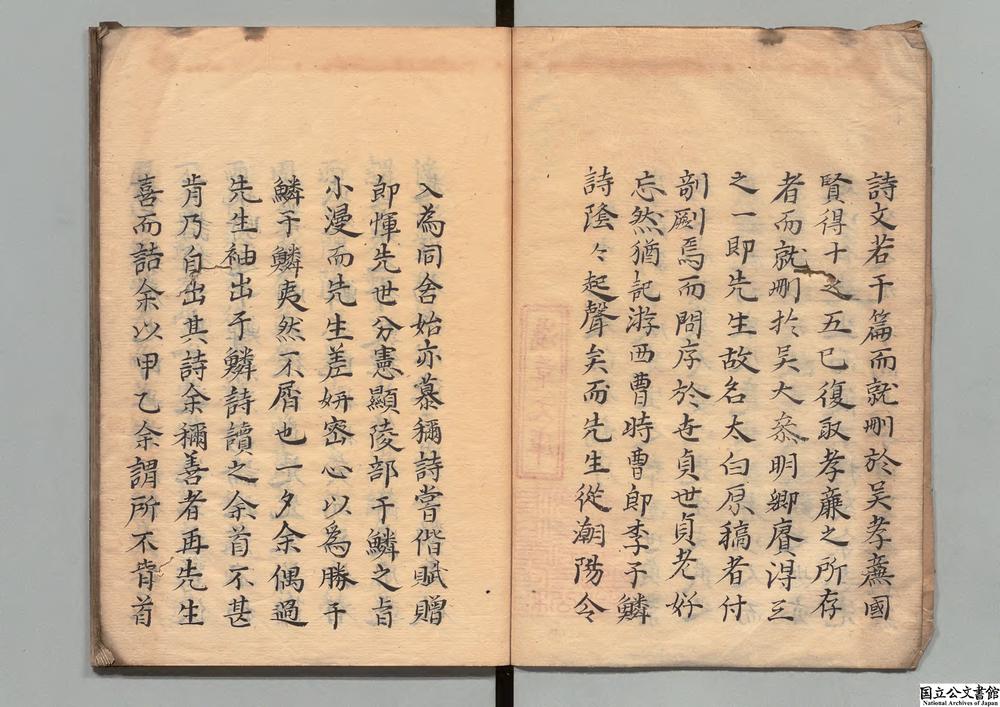 詩文若干篇而就刪於吳孝廉國
賢得十之五已復取孝廉之所存
者而就刪扵吳大叅明卿賡淂三
之一即先生故名太白原稿者付
剞劂焉而問序於世貞世貞老好
忘然猶記游西曹時曹郎李于鱗
詩隂々起聲矣而先生從潮陽令
入為同舍始亦慕稱詩嘗偕賦贈
郎惲先世分憲顯陵部于鱗之旨
小漫而先生差妍宻心以爲勝于
鱗于鱗夷然不屑也一夕余偶過
先生袖出于鱗詩讀之余首不甚
肯乃自出其詩余稱善者再先生
喜而詰余以甲乙余謂所不肯首
国立公文書館
National Archives of Japan